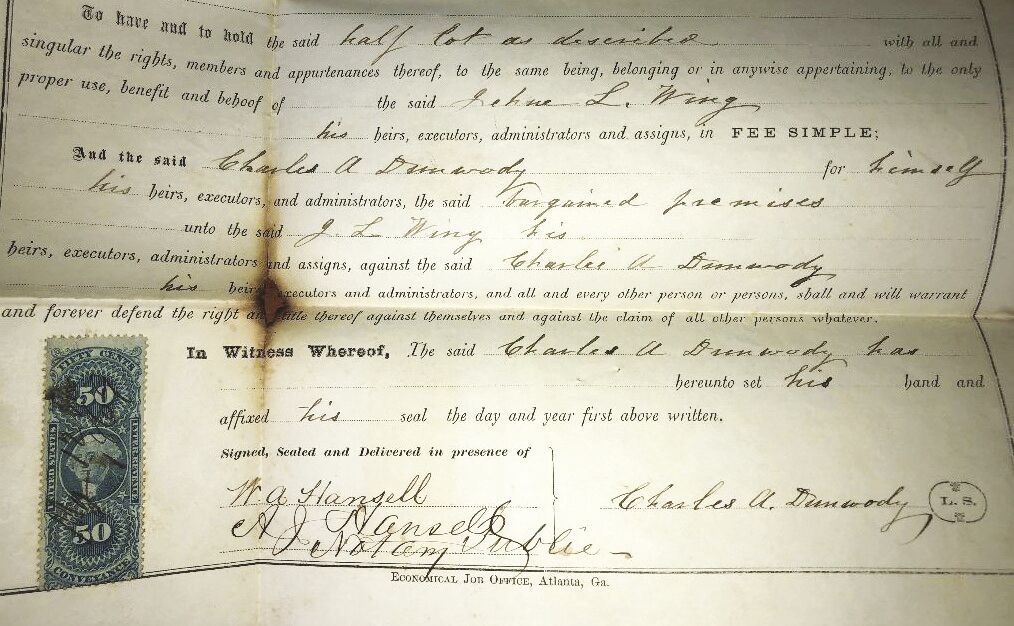 To have and to hold the said half lot as described with all and
singular the rights, members and appurtenances thereof, to the same being, belonging or in anywise appertaining, to the only
proper use, benefit and behoof of the said Jehue L. Wing
his heirs, executors, administrators and assigns, in FEE SIMPLE;
And the said Charles A Dunwody for himself
his heirs, executors, and administrators, the said bargained premises
unto the said J. L Wing his
heirs, executors, administrators and assigns, against the said Charles A Dunwody
his heirs executors and administrators, and all and every other person or persons, shall and will warrant
and forever defend the right and title thereof against themselves and against the claim of all other persons whatever.
In Witness Whereof, The said Charles A Dunwody has
hereunto set his hand and
affixed his seal the day and year first above written.
Signed, Sealed and Delivered in presence of
W. A Hansell
Charles A. Dunwody L. S.
A J Hansell
Notary Public
ECONOMICAL JOB OFFICE, Atlanta, Ga.
FIFTY CENTS
50
UNITED STATES
INTER. REVENUE
50
CONVEYANCE